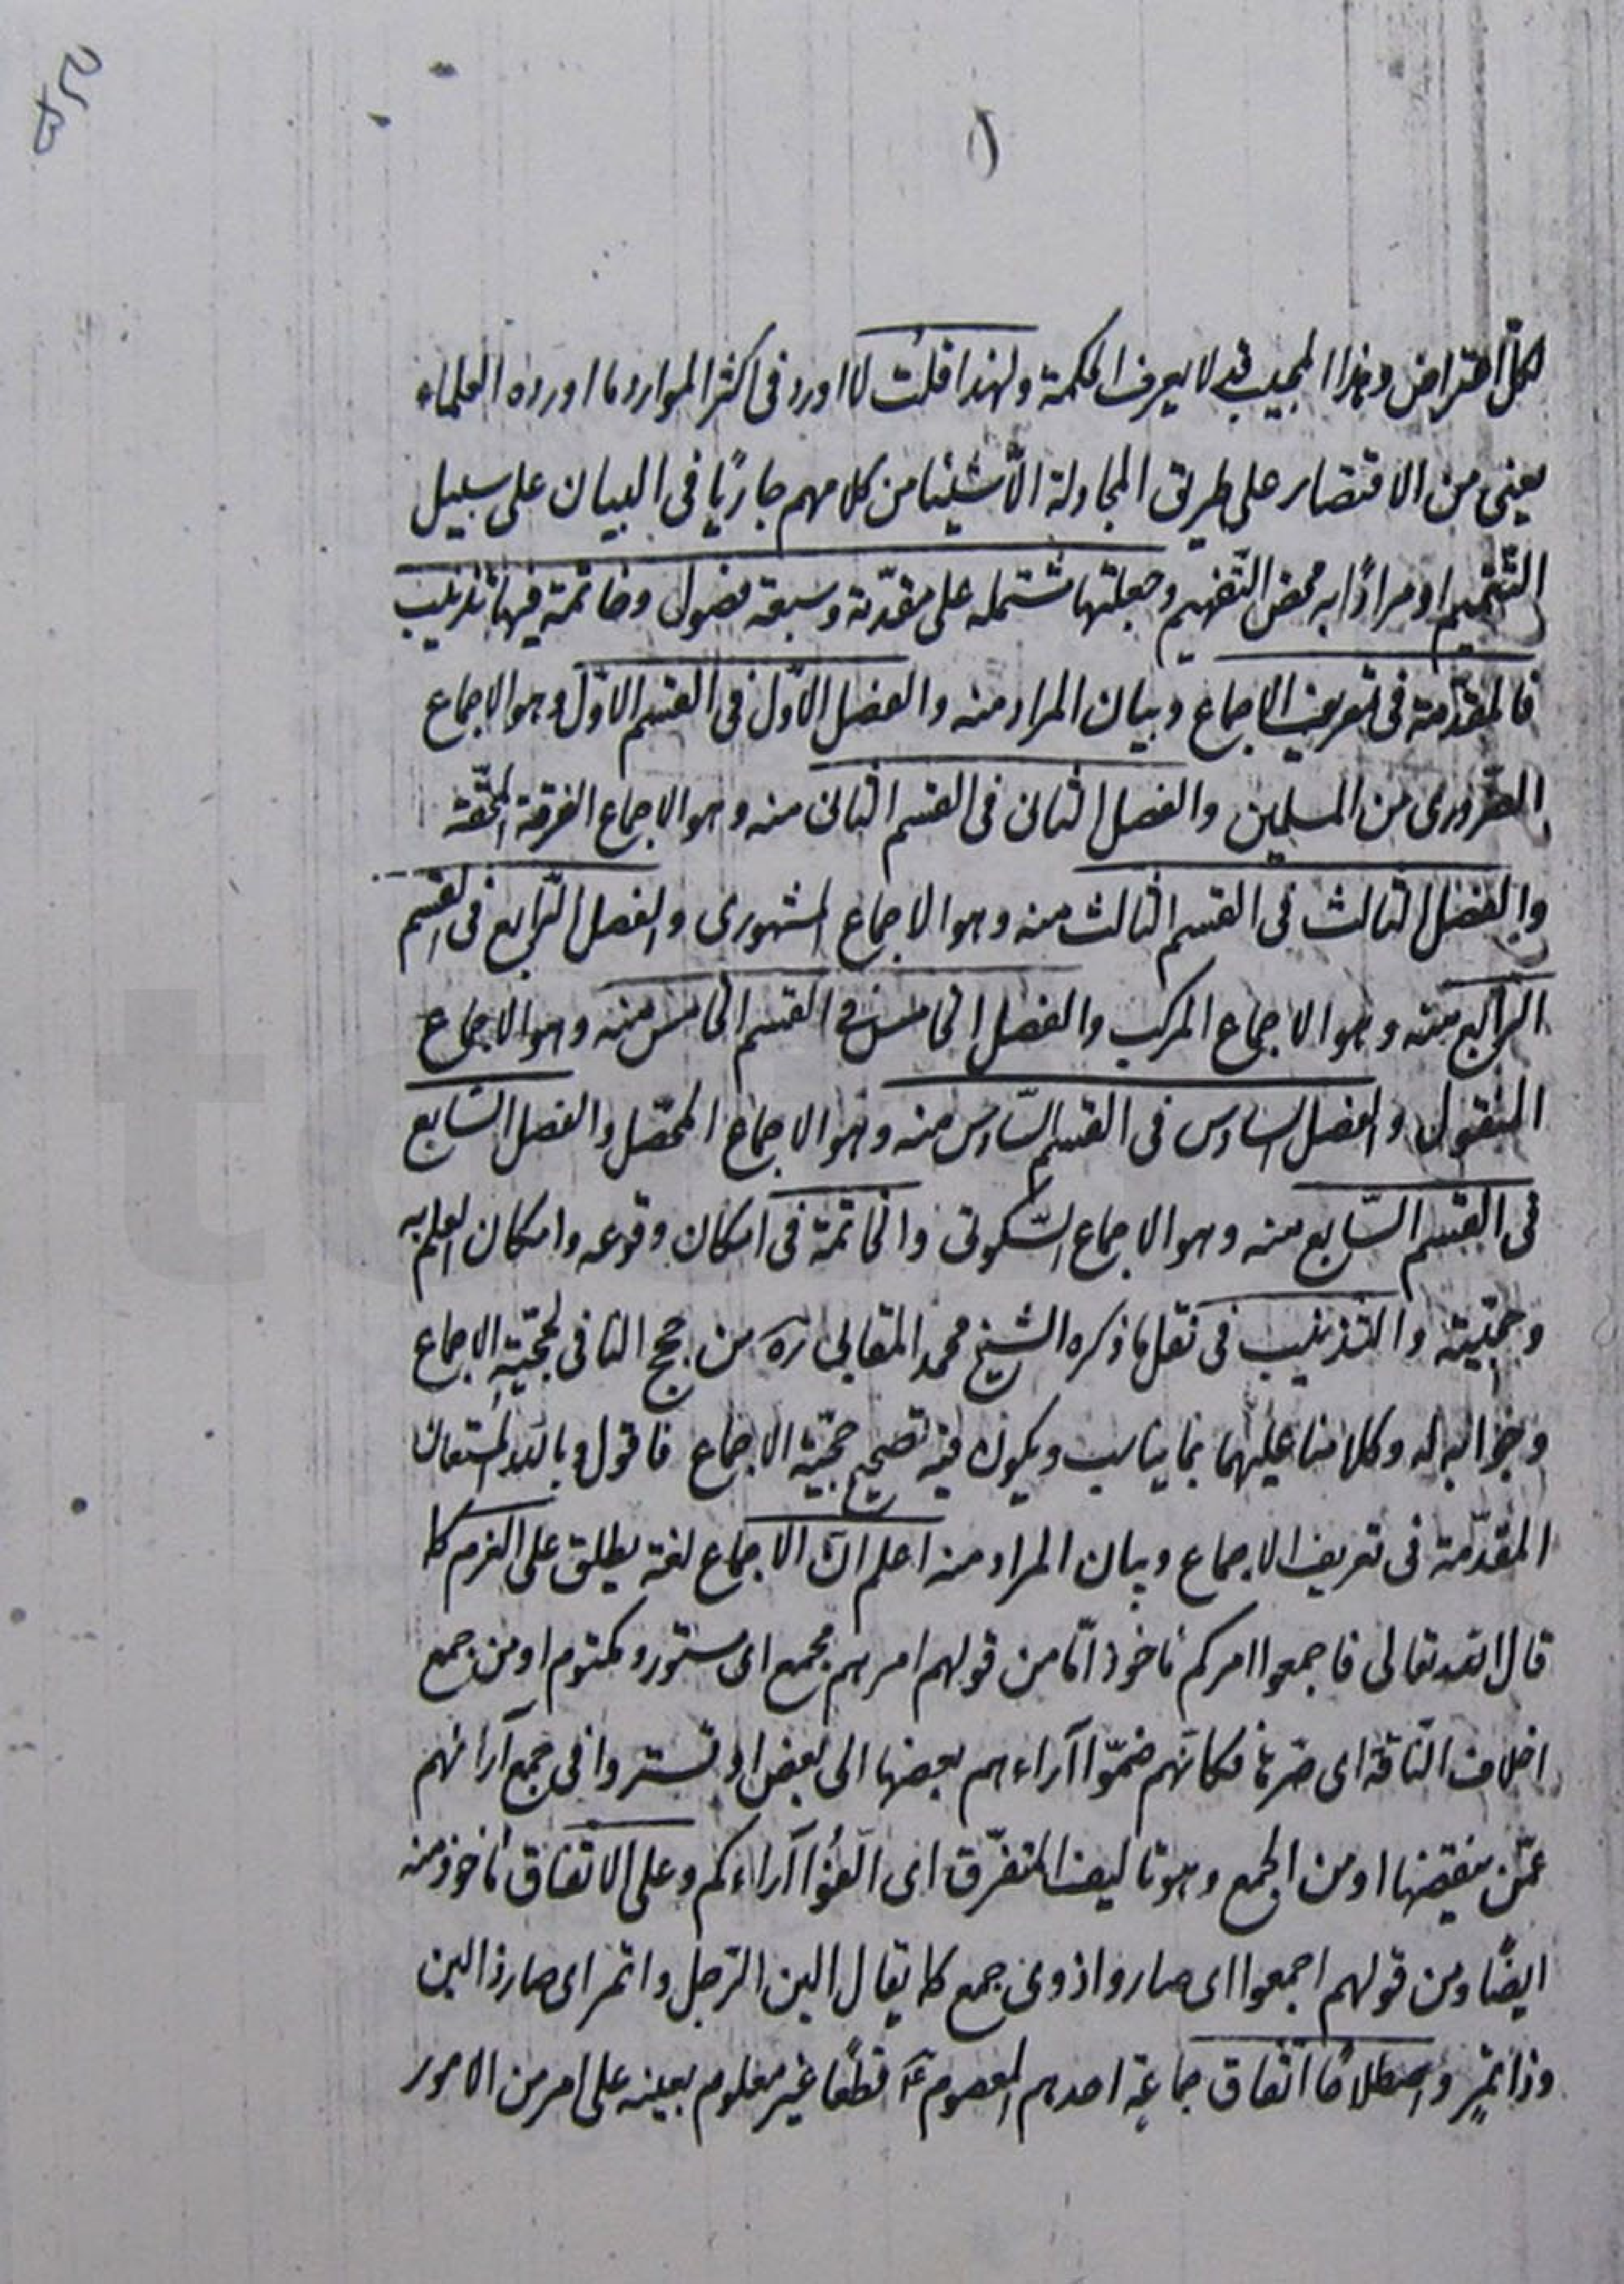 لكل اعتراض وهذا المجيب قد لا يعرف الحكمة ولهذا قلت لا اورد فى اكثر الموارد ما اورده العلماء
يعنى من الاقتصار على طريق المجادلة الّا شيئا من كلامهم جاريًا فى البيان على سبيل
التتميم او مرادًا به محض التفهيم وجعلتها مشتمله على مقدّمة وسبعة فصول وخاتمة فيها تذنيب
فالمقدّمة فى تعريف الاجماع وبيان المراد منه والفصل الاوّل فى القسم الاوّل وهو الاجماع
الضّرورى من المسلمين والفصل الثانى فى القسم الثانى منه وهو الاجماع الفرقة المحقّة
والفصل الثالث فى القسم الثالث منه وهو الاجماع المشهورى والفصل الرّابع فى القسم
الرّابع منه وهو الاجماع المركب والفصل الخامس فى القسم الخامس منه وهو الاجماع
المنقول والفصل السادس فى القسم السّادس منه وهو الاجماع المحصّل والفصل السّابع
فى القسم السّابع منه وهو الاجماع السّكوتى والخاتمة فى امكان وقوعه وامكان العلم به
وحجّيته والتذنيب فى نقل ما ذكره الشيخ محمد المقابى ره من حجج النافى لحجّيّة الاجماع
وجوابه له وكلامنا عليهما بما يناسب ويكون فيه تصحيح حجّية الاجماع فاقول وبالله المستعان
المقدّمة فى تعريف الاجماع وبيان المراد منه اعلم انّ الاجماع لغة يطلق على العزم كما
قال الله تعالى فاجمعوا امركم ماخوذ امّا من قولهم امرهم مجمع اى مستور ومكتوم او من جمع
اخلاف النّاقة اى صرّها فكانّهم ضمّوا آراءهم بعضها الى بعض او تستروا فى جمع آرائهم
عمّن ينقضها او من الجمع وهو تاليف المتفرّق اى الّفؤا آراءكم وعلى الاتفاق ماخوذ منه
ايضًا ومن قولهم اجمعوا اى صاروا ذوى جمع كما يقال البن الرّجل واتمر اى صار ذا لبن
وذا تمرٍ واصطلاحًا اتّفاق جماعة احدهم المعصوم ع قطعًا غير معلوم بعينه على امر من الامور